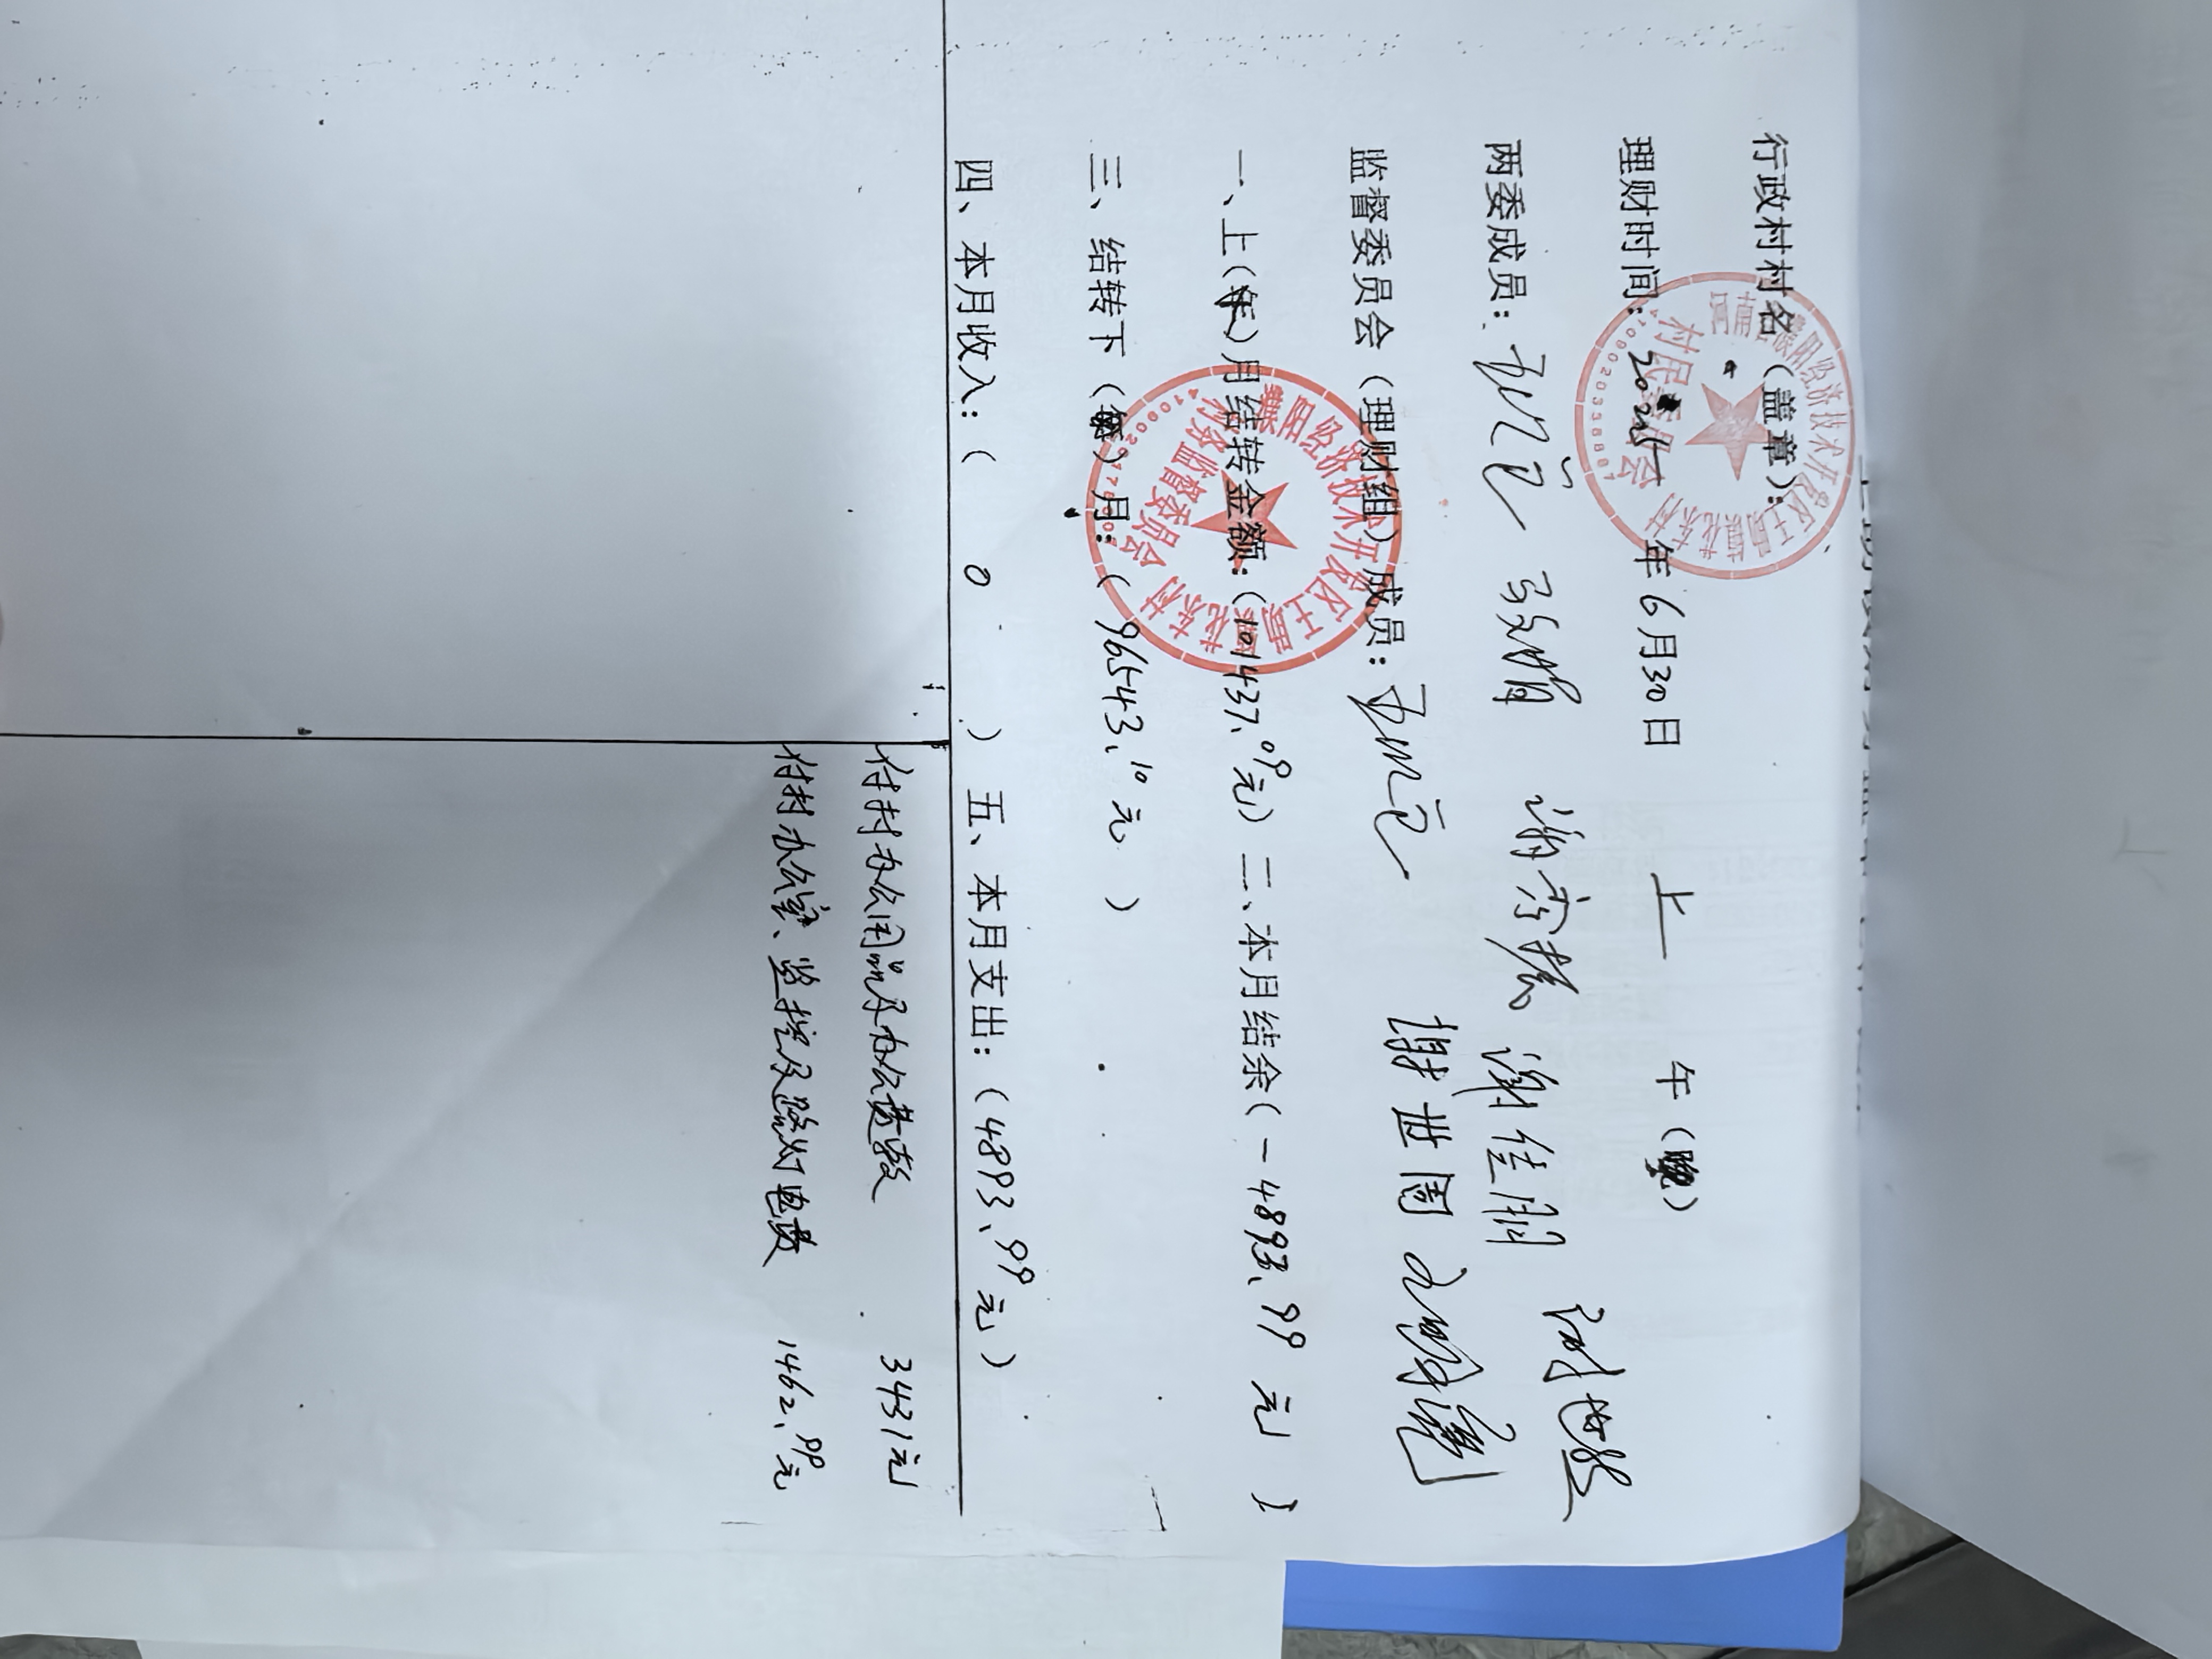 行政村村名(盖章):
理财时间: 2025年6月30日 上 午(晚)
两委成员:
监督委员会(理财组)成员: 谢世国
一、上(年)月结转金额:(101437.09元)二、本月结余(-4893.99元)
三、结转下(年)月:(96543.10元)
四、本月收入:( 0 )五、本月支出:(4893.99元)
付村办公用品及办公费款 3431元
付村办公室、监控及路灯电费 1462.99元
濮阳经济技术开发区王助镇花东村
村民委员会
濮阳经济技术开发区王助镇花东村
村务监督委员会